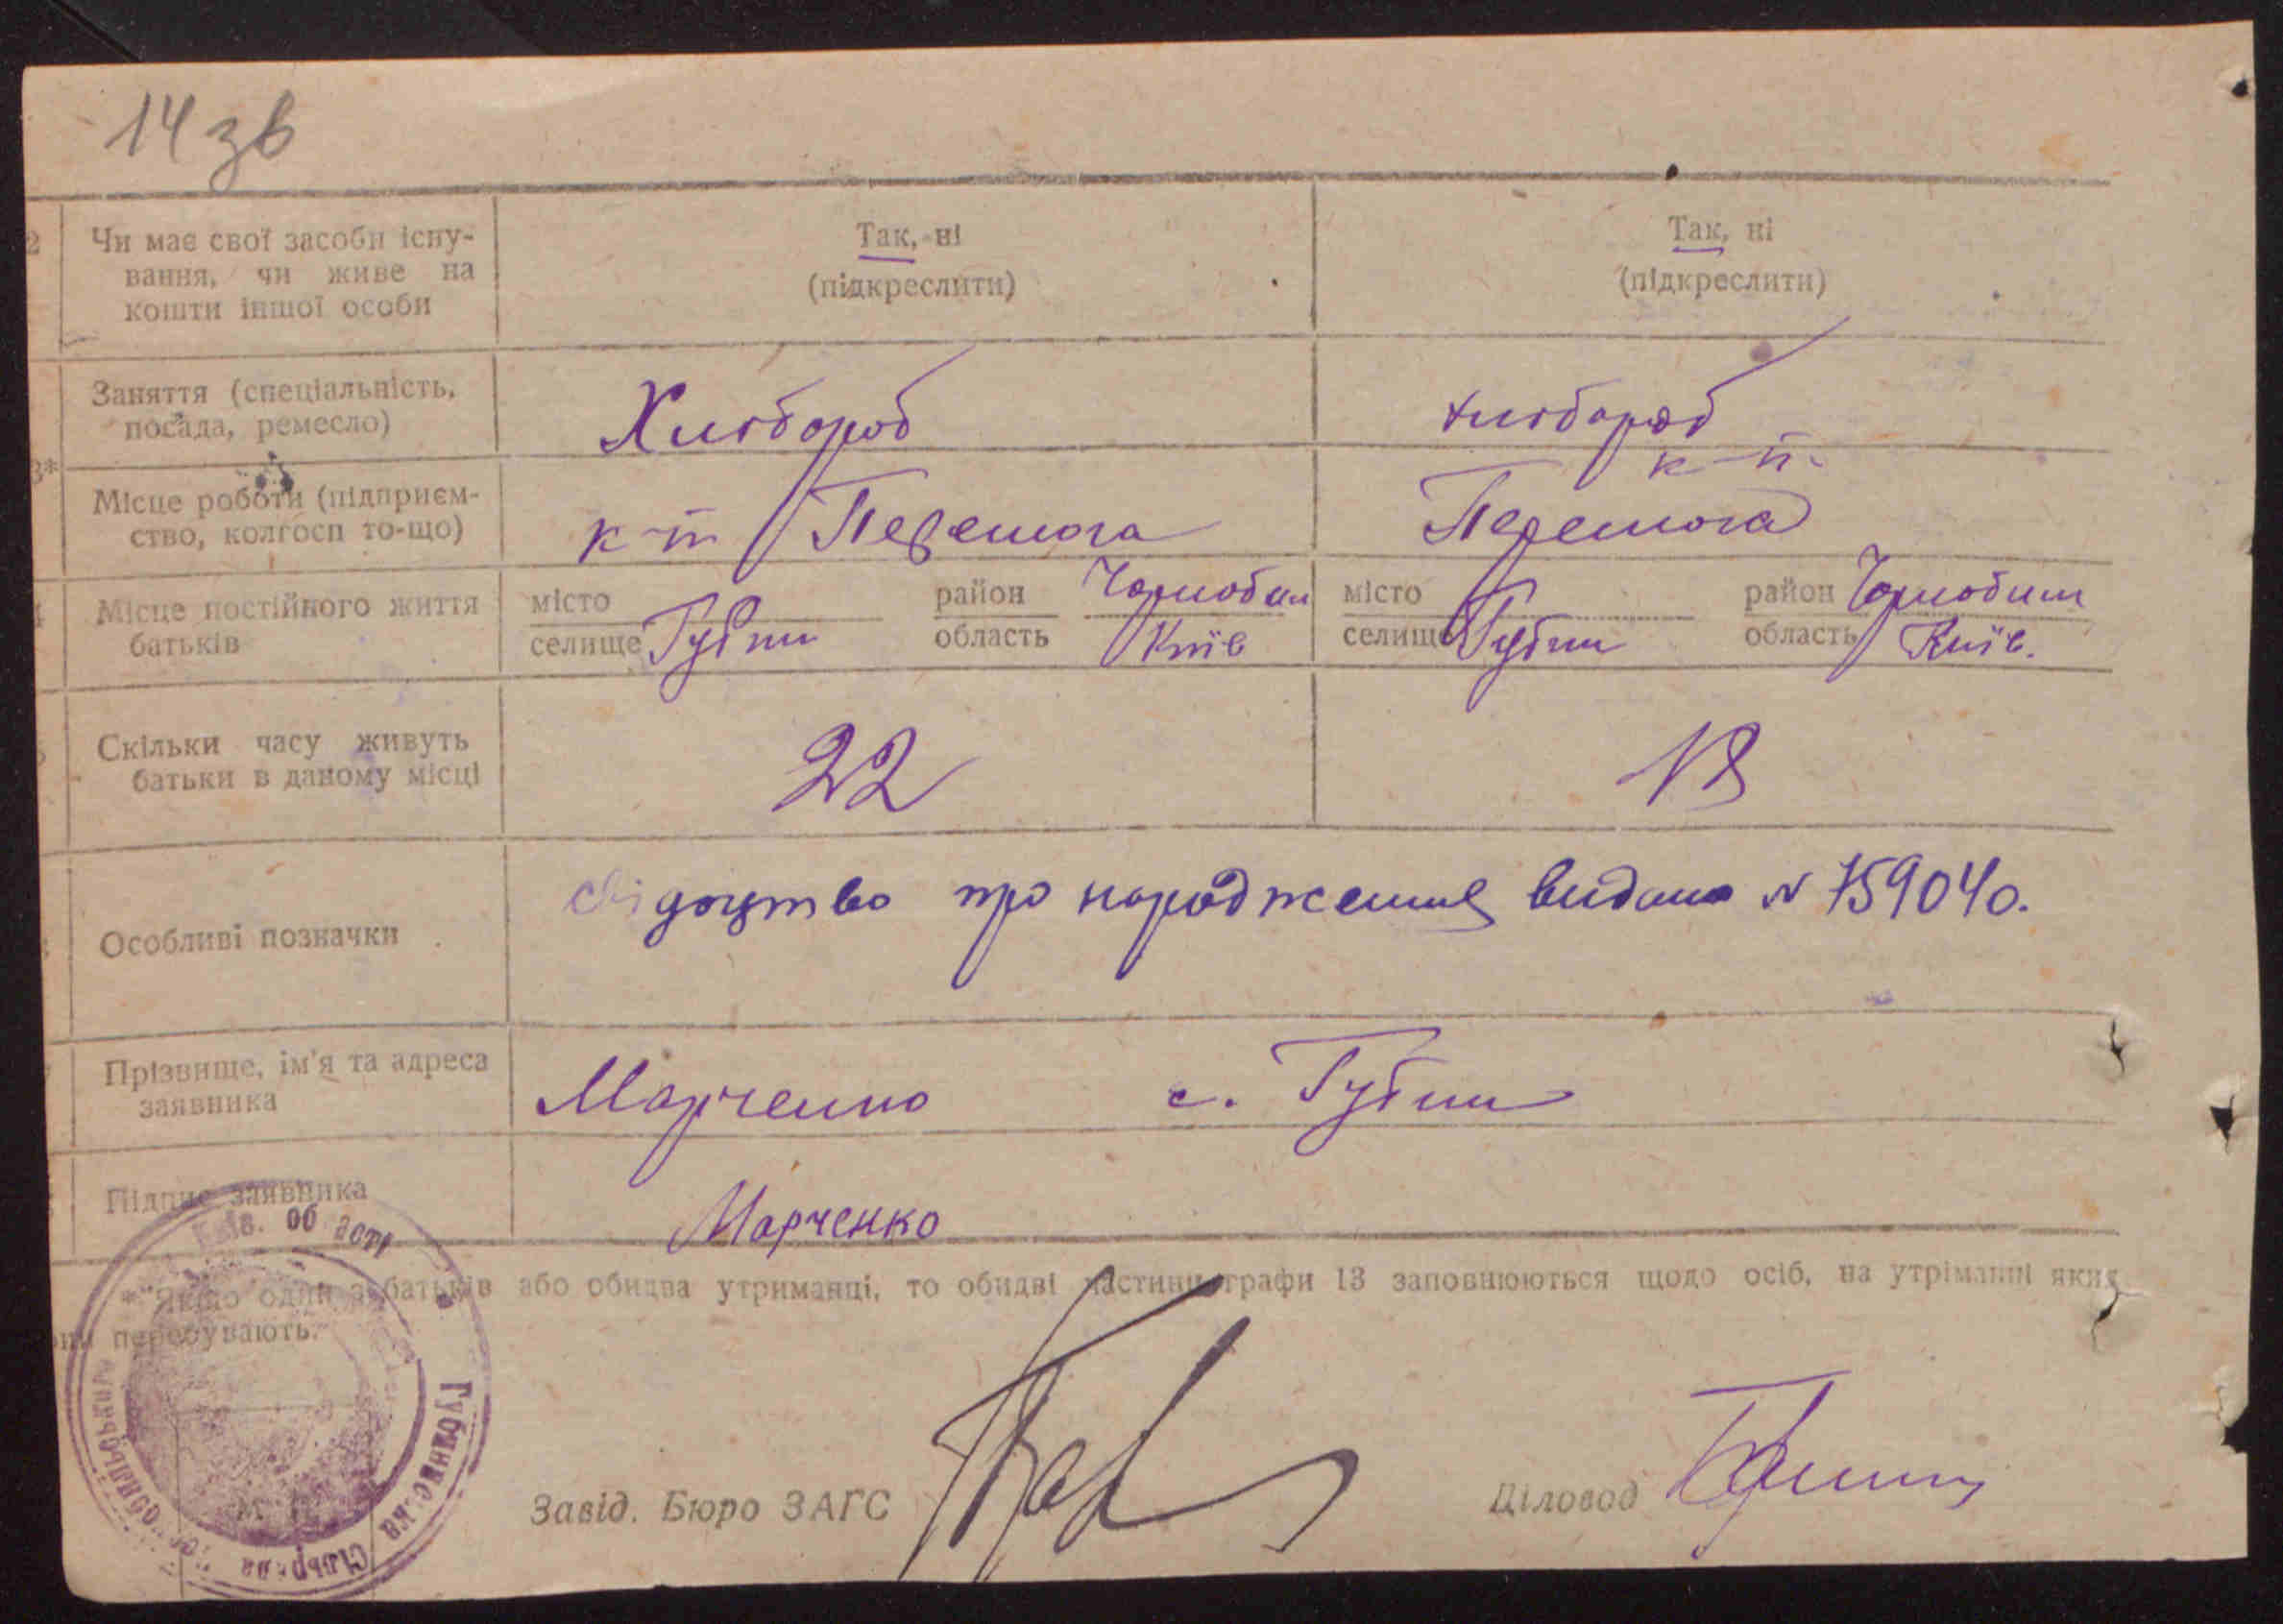 14 зв
2 Чи має свої засоби існу- Так, ні Так, ні
вання, чи живе на (підкреслити) (підкреслити)
кошти іншої особи
Заняття (спеціальність, Хлібороб хлібороб
посада, ремесло)
3* Місце роботи (підприєм- к-п Перемога к-п.
ство, колгосп то-що) Перемога
Місце постійного життя місто район Чорнобил місто район Чорнобил
батьків селище Губин область Київ селище Губин область Київ.
Скільки часу живуть 22 18
батьки в даному місці
Особливі позначки свідоцтво про народження видано № 759040.
Прізвище, ім'я та адреса Марченко с. Губин
заявника
Підпис заявника Марченко
* Якщо один з батьків або обидва утриманці, то обидві частини графи 13 заповнюються щодо осіб, на утріманні яких
вони перебувають.
Завід. Бюро ЗАГС Діловод
Київ. області
Губинська сільрада Чорнобильського